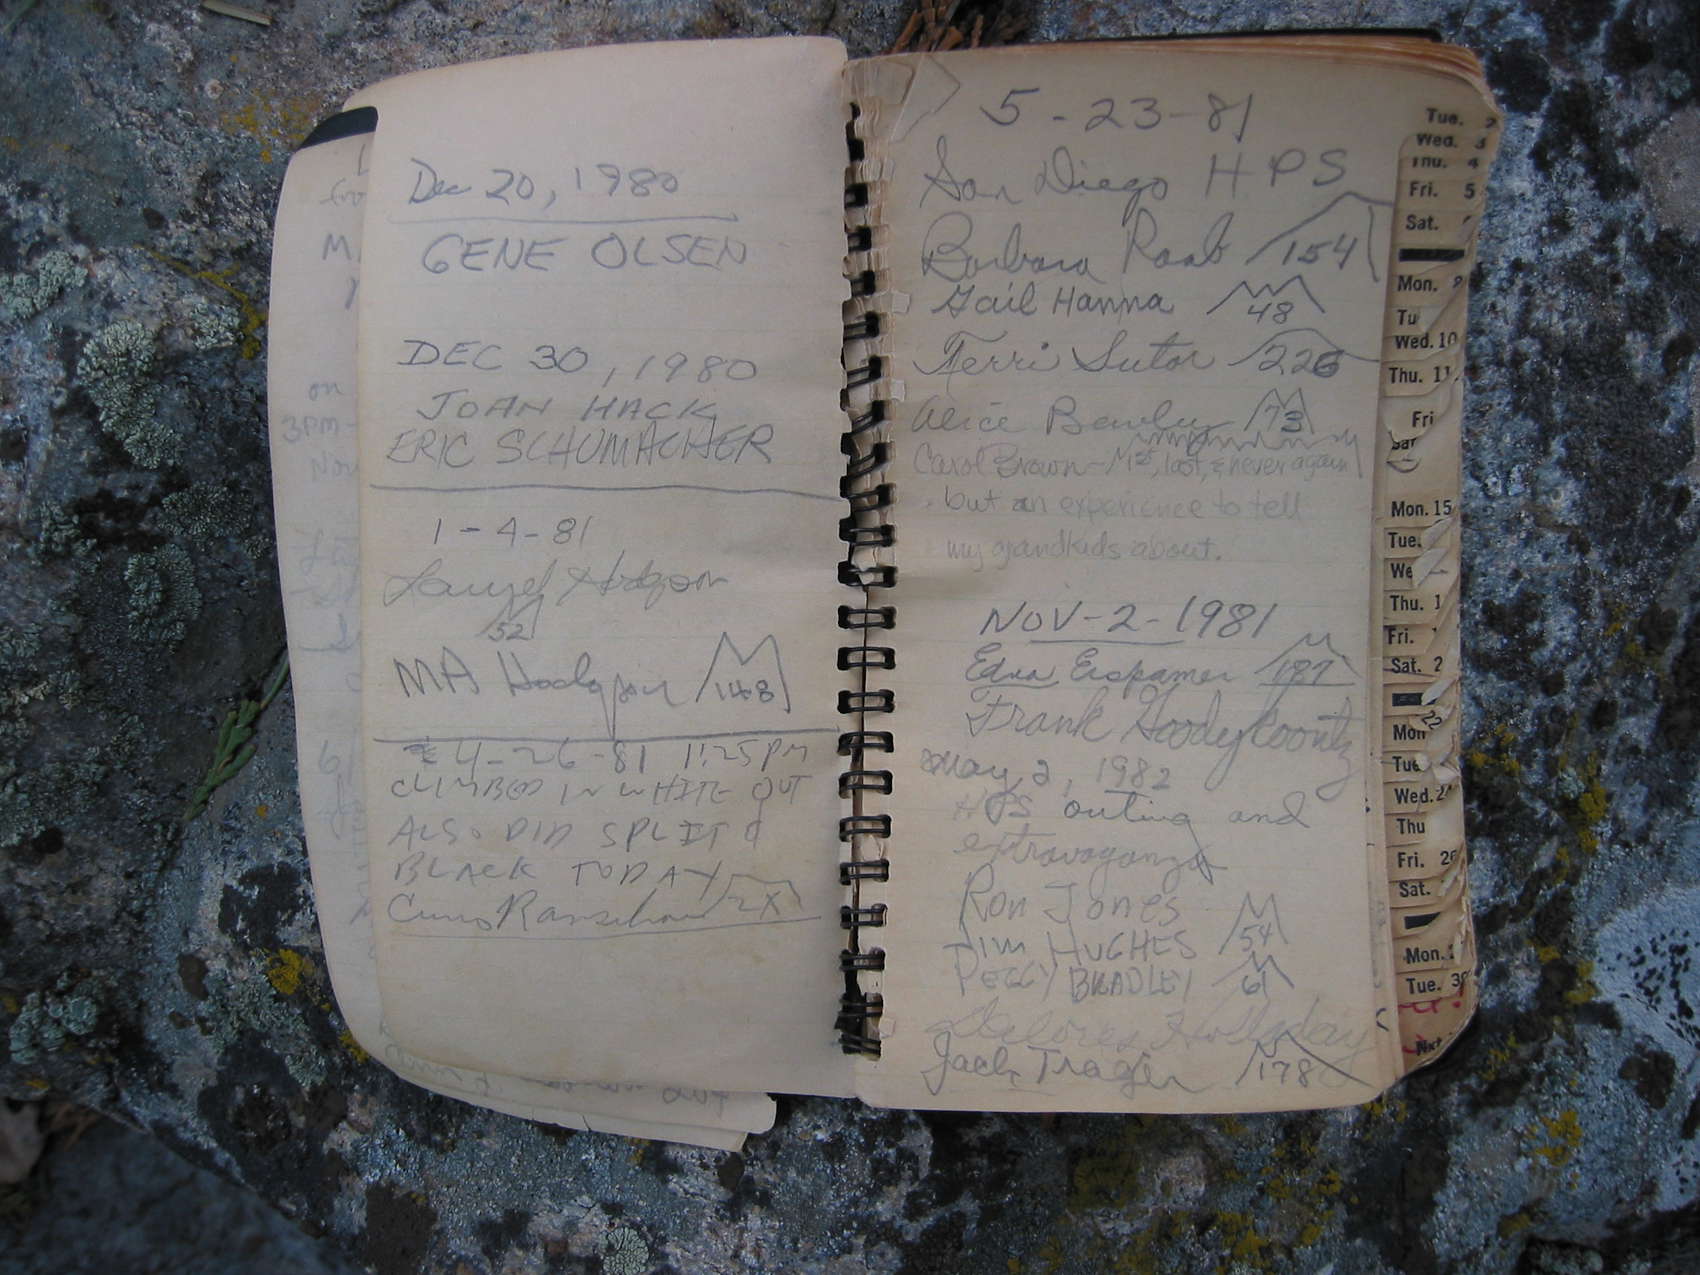 Dec 20, 1980
GENE OLSEN
DEC 30, 1980
JOAN HACK
ERIC SCHUMACHER
1-4-81
52
MA Hodgson 148
4-26-81 11:25 PM
CLIMBED IN WHITE OUT
ALSO DID SPLIT &
BLACK TODAY
2X
5-23-81
San Diego HPS
Barbara Raab 154
Gail Hanna 48
Terri Sutor 226
Alice 73
Carol Brown - 1st, last, & never again
but an experience to tell
my grandkids about.
NOV-2-1981
Edna Erspamer 187
Frank Goodykoontz
May 2, 1982
HPS outing and
extravaganza
Ron Jones
JIM HUGHES 54
PEGGY BRADLEY 61
Delores Holladay
Jack Trager 178
Tue. 2
Wed. 3
Thu. 4
Fri. 5
Sat.
Mon. 8
Tu
Wed. 10
Thu. 11
Fri
Sat
Mon. 15
Tue.
We
Thu. 1
Fri.
Sat. 2
Mon 22
Tue
Wed. 24
Thu
Fri. 26
Sat.
Mon. 2
Tue. 30